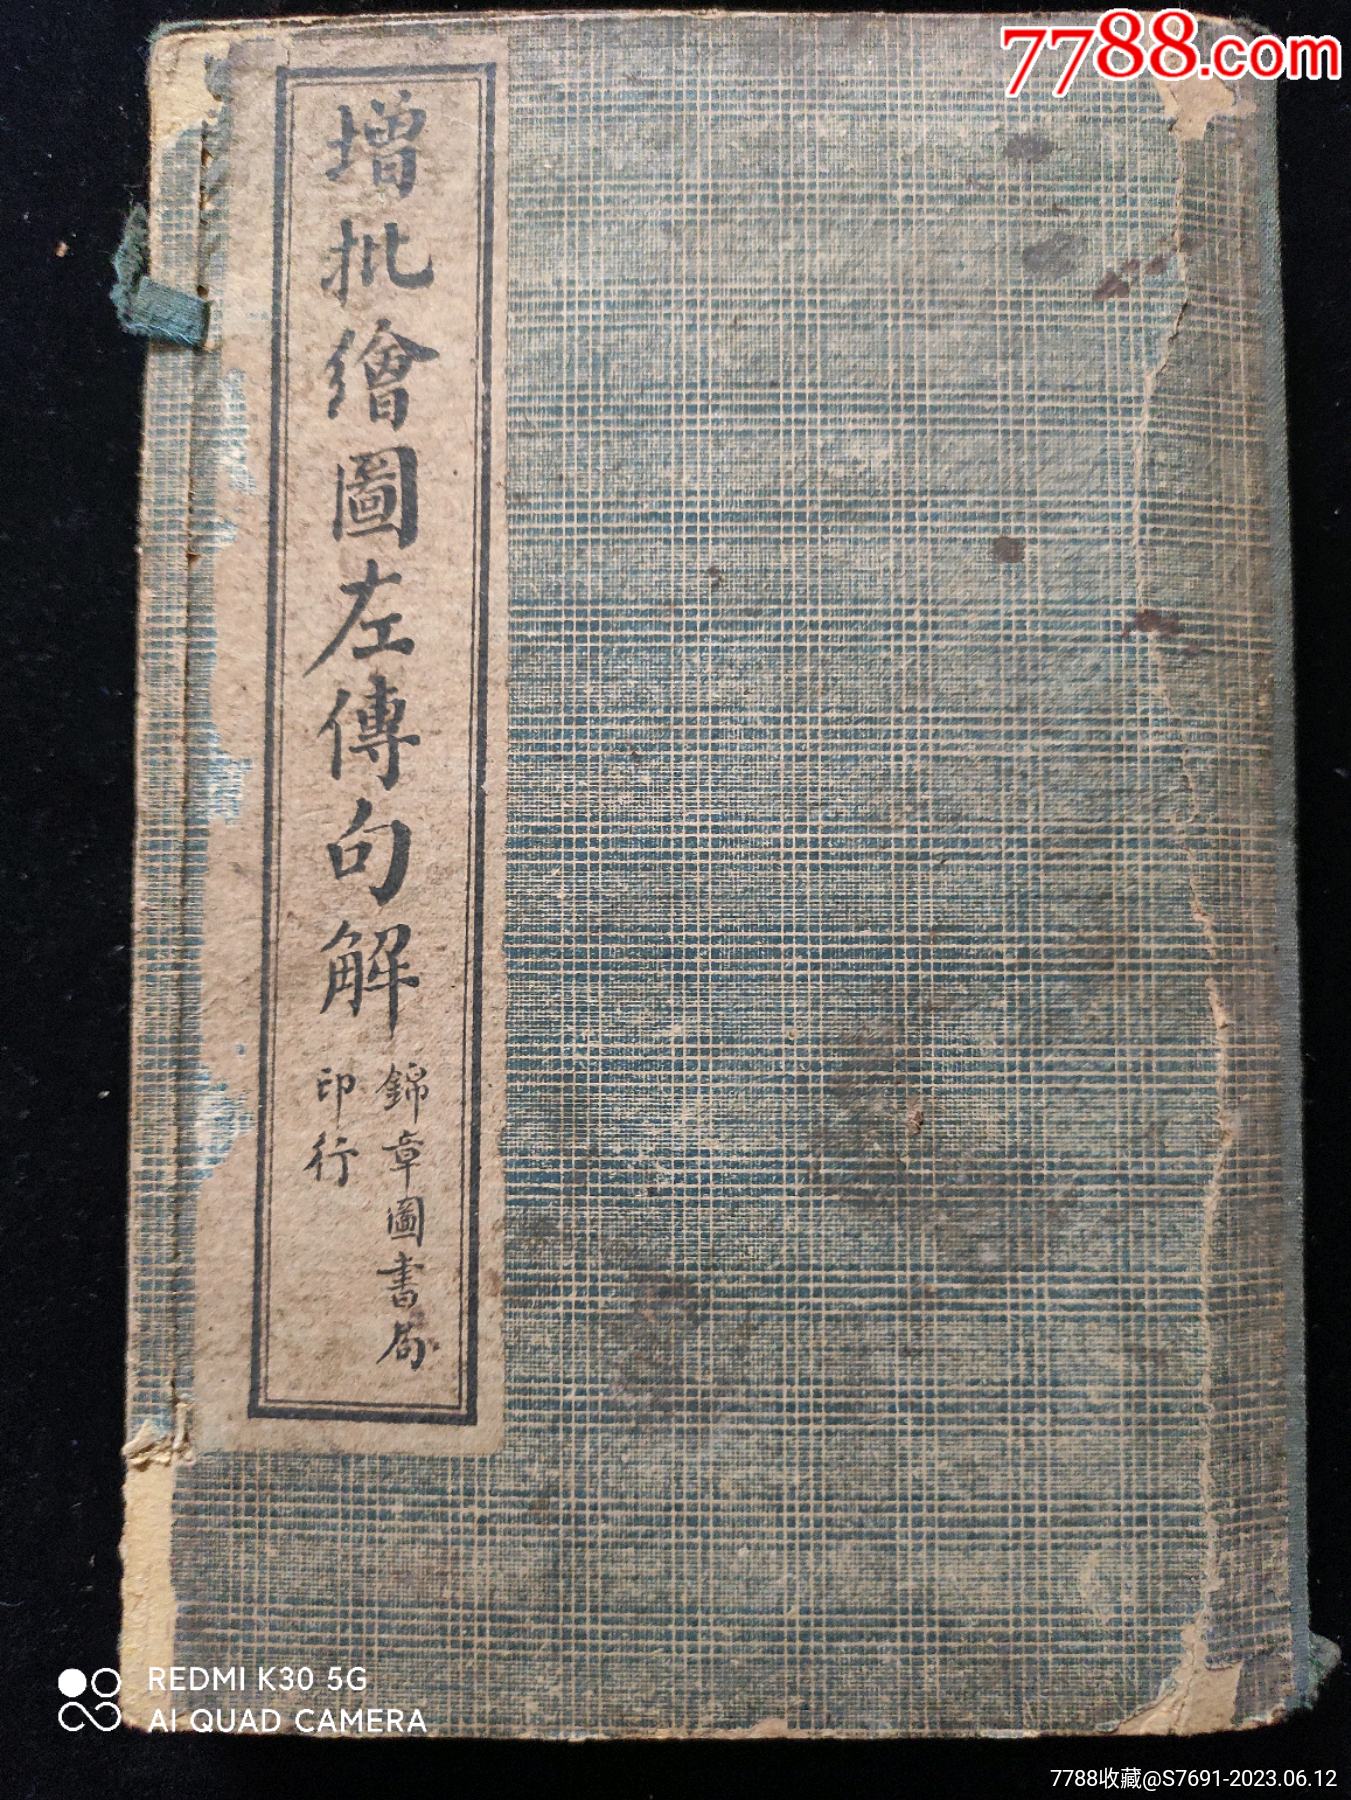 7788.com
增批繪圖左傳句解
錦章圖書局
印行
REDMI K30 5G
AI QUAD CAMERA
7788收藏@S7691-2023.06.12